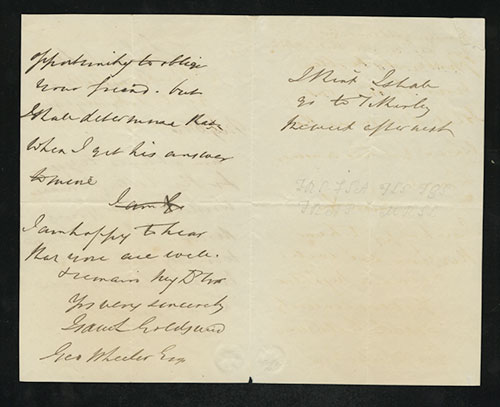 opportunity to oblige
your friend. but
I shall determine that
When I get his answer
to mine
I am &
I am happy to hear
that you are well.
& remain My D Sir
Yrs very sincerely
Goldsmid
Geo Wheeler Esq
I think I shall
go to
the week after next